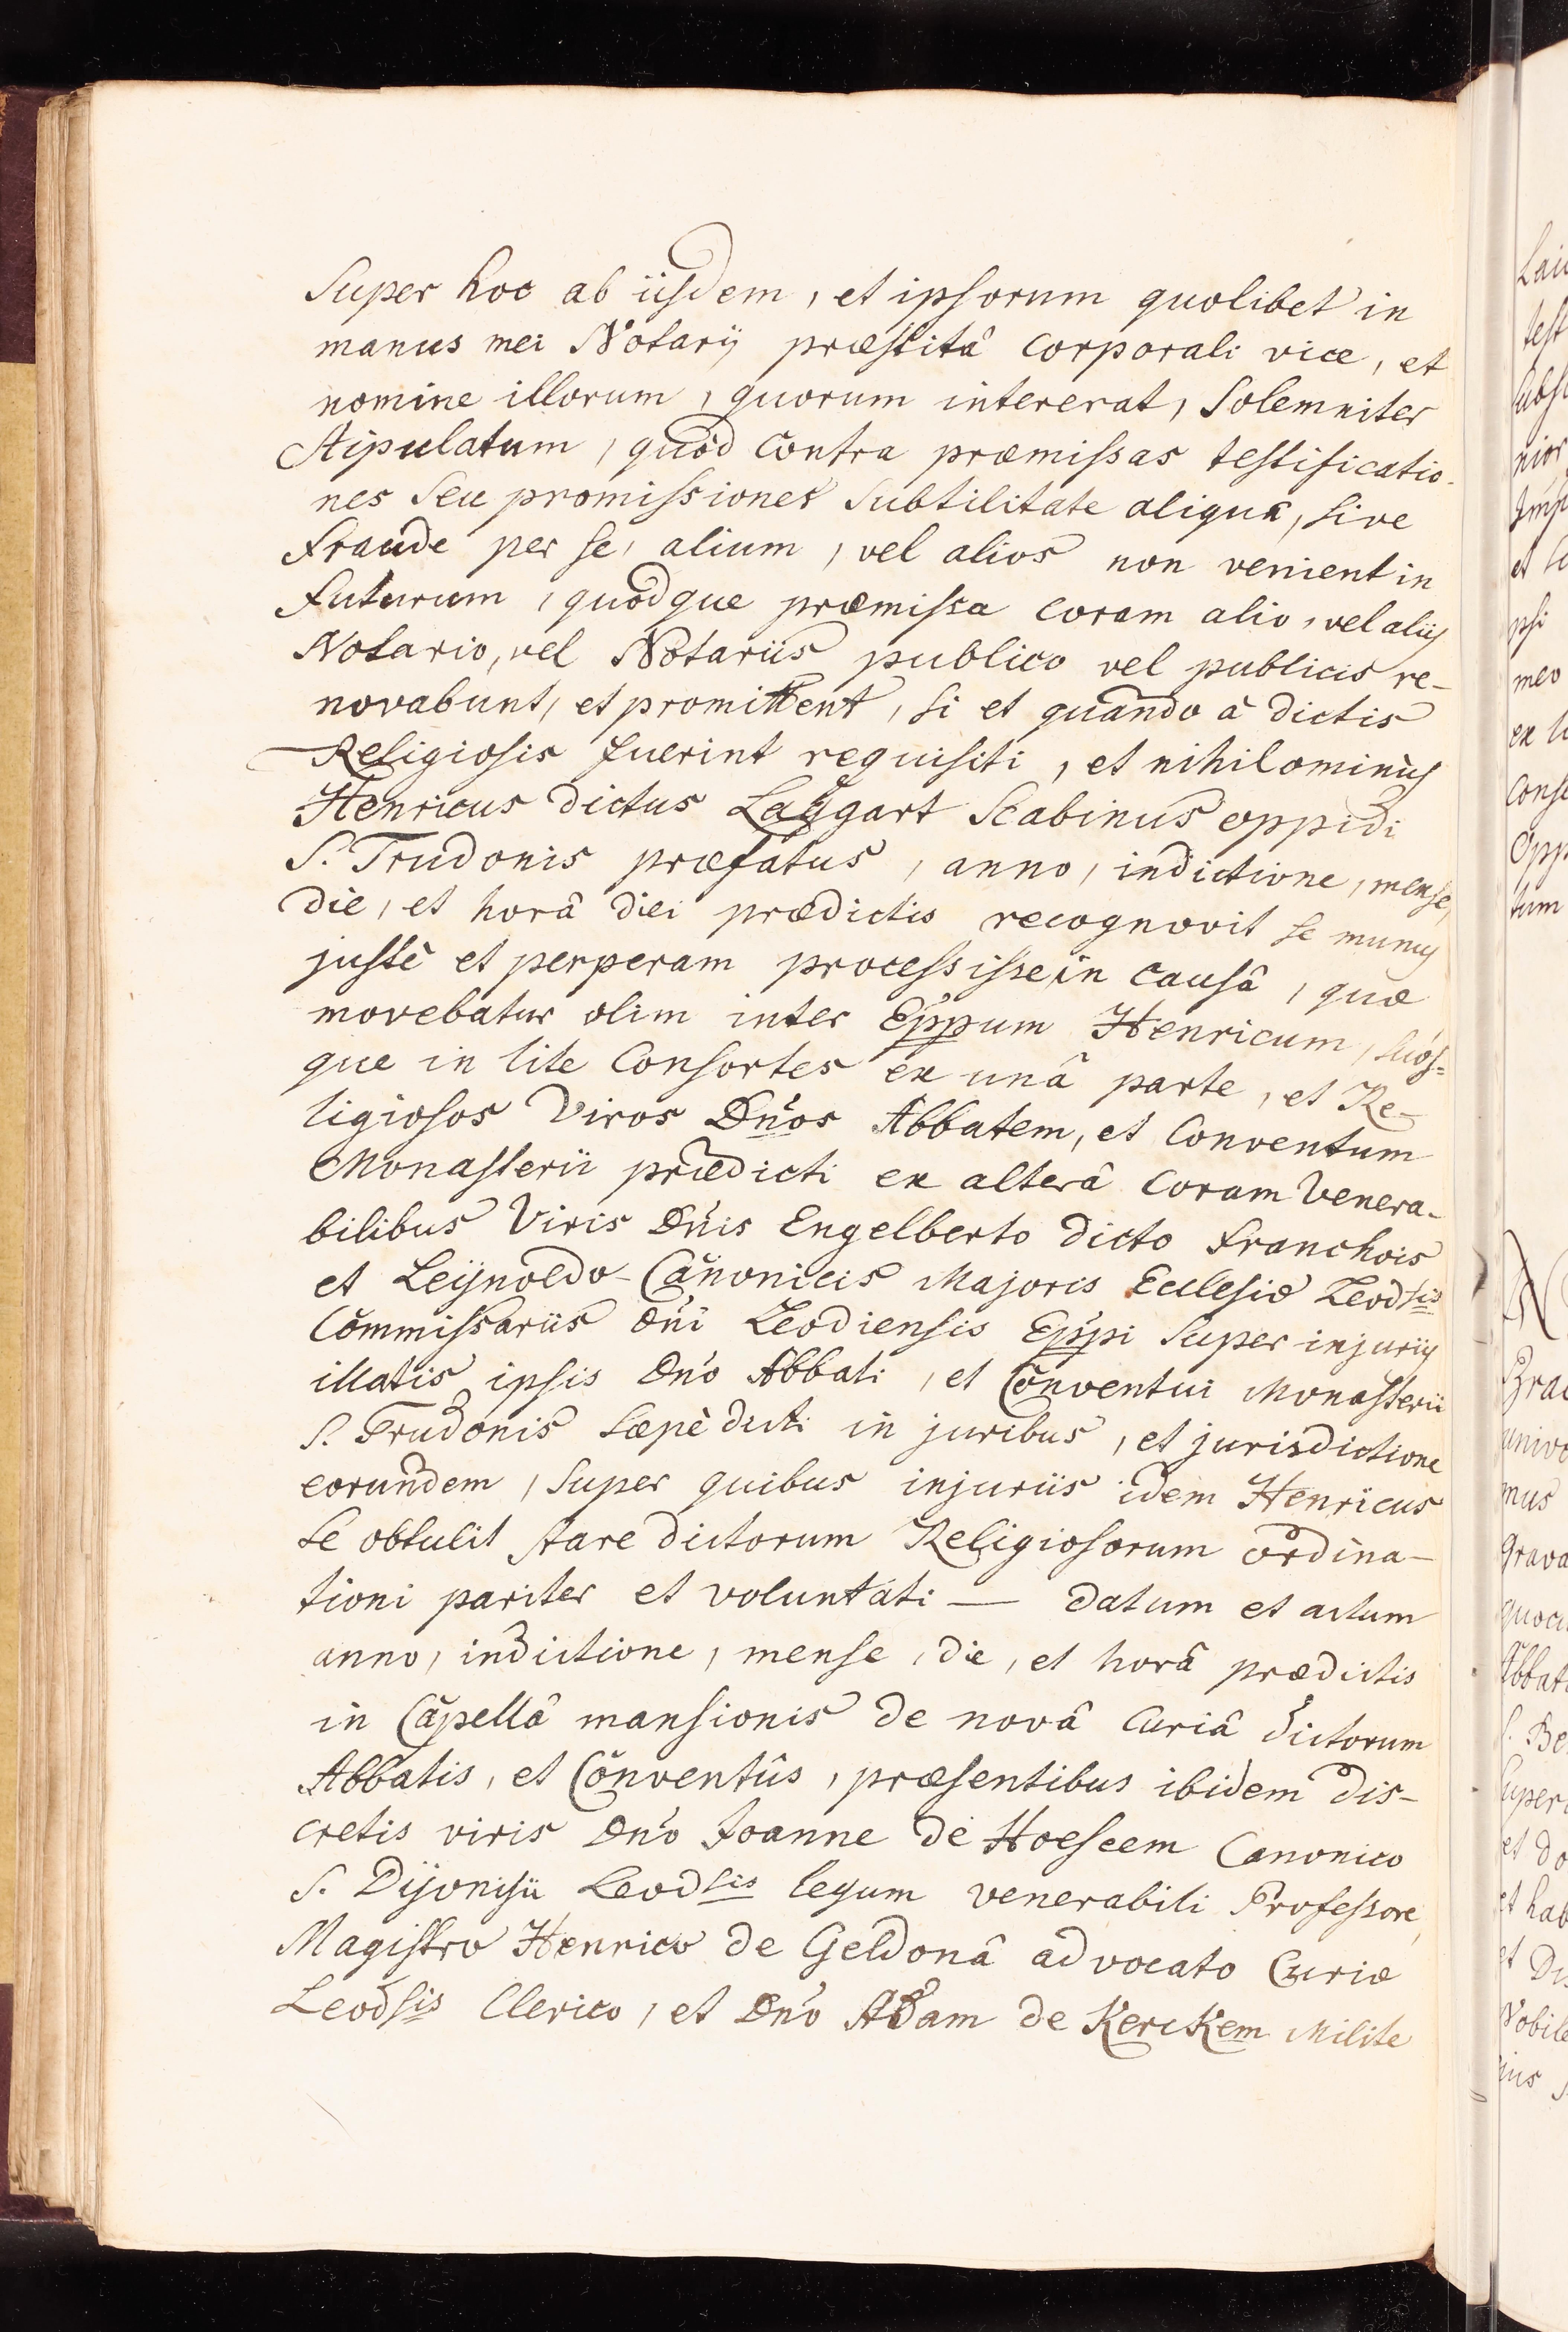 Super hoc ab iisdem, et ipsorum quolibet in
manus mei Notarij præstitâ corporali vice, et
nomine illorum, quorum intererat, solemniter
stipulatum, quòd contra præmissas testificatio-
nes seu promissiones subtilitate aliquâ, sive
fraude per se, alium, vel alios non venient in
futurum, quodque præmissa coram alio, vel aliis
Notario, vel Notariis publico vel publicis re-
novabunt, et promittent, si et quando à dictis
Religiosis fuerint requisiti, et nihilominùs
Henricus dictus Laggart Scabinus oppidi
S. Trudonis præfatus, anno, indictione, mense,
die, et horâ diei prædictis recognovit se minus
justè et perperam processisse in causâ, quæ
movebatur olim inter Eppum Henricum, suos-
que in lite Consortes ex unâ parte, et Re-
ligiosos Viros Dños Abbatem, et Conventum
Monasterii prædicti ex alterâ coram Venera-
bilibus Viris Dñis Engelberto dicto Franchois
et Leijnoldo Canonicis Majoris Ecclesiæ Leodsis
Commissariis Dñi Leodiensis Eppi super injuriis
illatis ipsis Dño Abbati, et Conventui Monasterii
S. Trudonis sæpè dicti in juribus, et jurisdictione
eorundem, super quibus injuriis idem Henricus
se obtulit stare dictorum Religiosorum ordina-
tioni pariter et voluntati — datum et actum
anno, indictione, mense, die, et horâ prædictis
in Capellâ mansionis de novâ Curiâ dictorum
Abbatis, et Conventûs, præsentibus ibidem dis-
cretis viris Dño Joanne de Hoeseem Canonico
S. Dijonisii Leodsis legum venerabili Professore,
Magistro Henrico de Geldonâ advocato Curiæ
Leodsis Clerico, et Dño Adam de Kerckem Milite